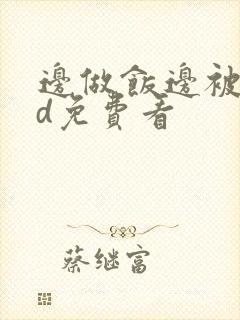 邊做飯邊被
d免費看
蔡继富